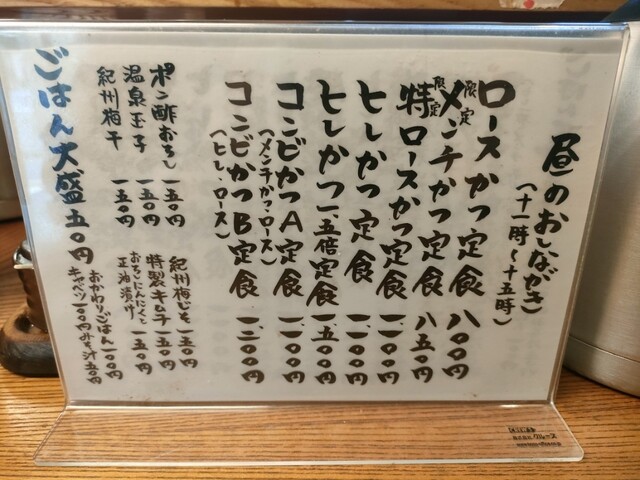 昼のおしながき
(十一時〜十五時)
ロースかつ定食 八〇〇円
限定 メンチかつ定食 八五〇円
限定 特ロースかつ定食 一、一〇〇円
ヒレかつ定食 一、一〇〇円
ヒレかつ一、五倍定食 一、五〇〇円
コンビかつA定食 一、一〇〇円
(メンチかつ・ロース)
コンビかつB定食 一、二〇〇円
(ヒレ・ロース)
ポン酢おろし 一五〇円
温泉玉子 一五〇円
紀州梅干 一五〇円
紀州梅じそ 一五〇円
特製キムチ 一五〇円
おろしにんにくと
正油漬け 一五〇円
おかわりごはん 一〇〇円
キャベツ 一〇〇円 みそ汁 五〇円
ごはん大盛 五〇円